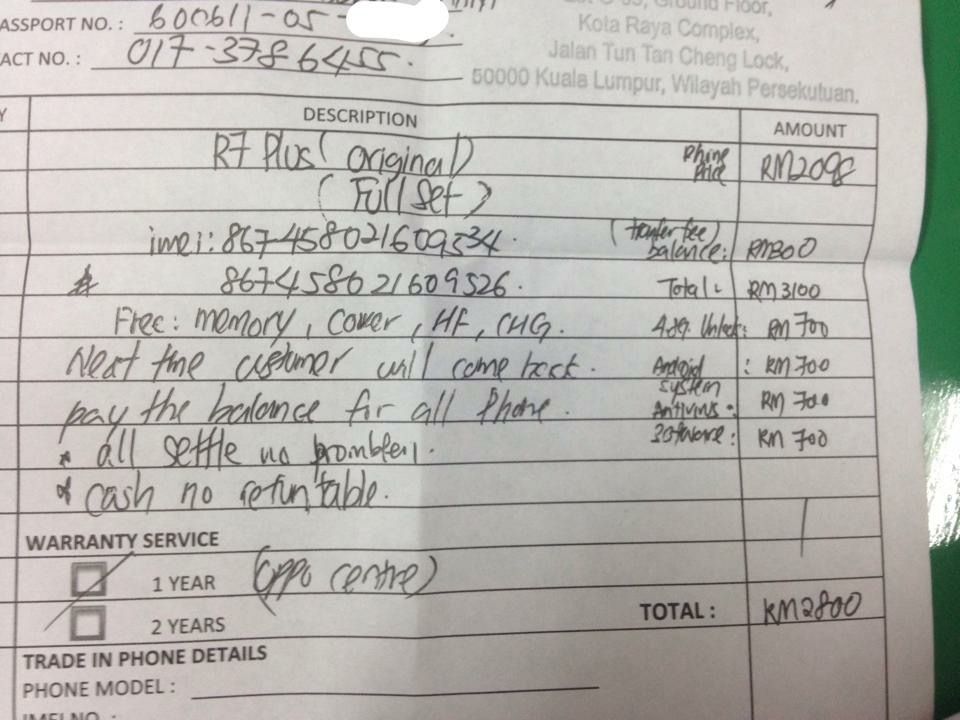 ASSPORT NO. : 600611-05-
ACT NO. : 017-3786455.
Ground Floor,
Kota Raya Complex,
Jalan Tun Tan Cheng Lock,
50000 Kuala Lumpur, Wilayah Persekutuan.
Y DESCRIPTION AMOUNT
R7 Plus (original) Phine Price RM2098
(Full Set)
imei: 867458021609534. (tranfer fee) balance: RM300
867458021609526. Total: RM3100
Free: memory, Cover, HF, CHG. Unlock: RM700
Next time customer will come back. Android system : RM700
pay the balance for all Phone. Antivirus: RM700
* all settle no promblem. Software: RM700
* cash no refuntable.
WARRANTY SERVICE
1 YEAR (Oppo Centre)
2 YEARS TOTAL : RM2800
TRADE IN PHONE DETAILS
PHONE MODEL :
IMEI NO :